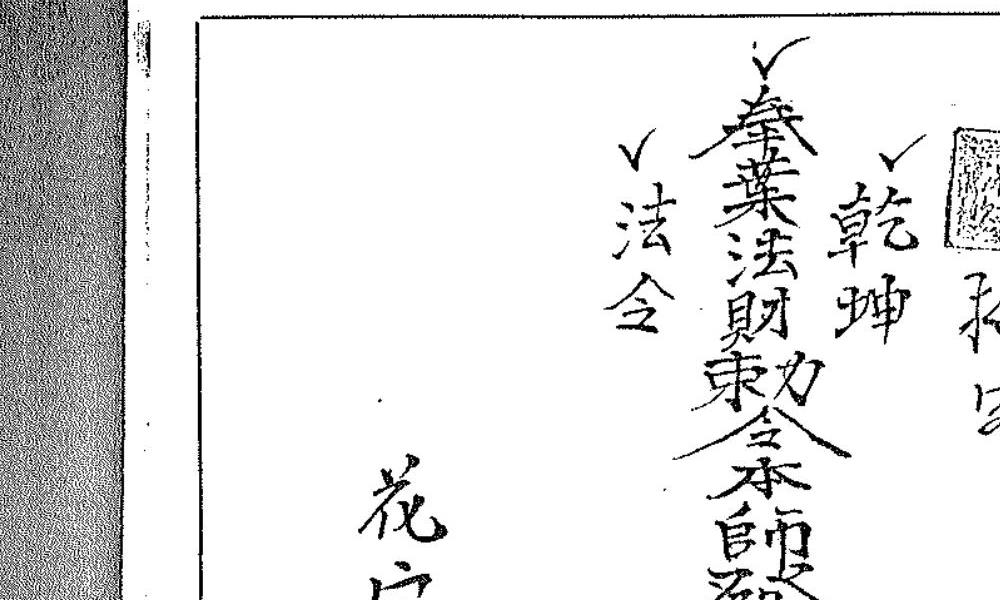 乾坤
奉葉法財勅令本師
法令
花